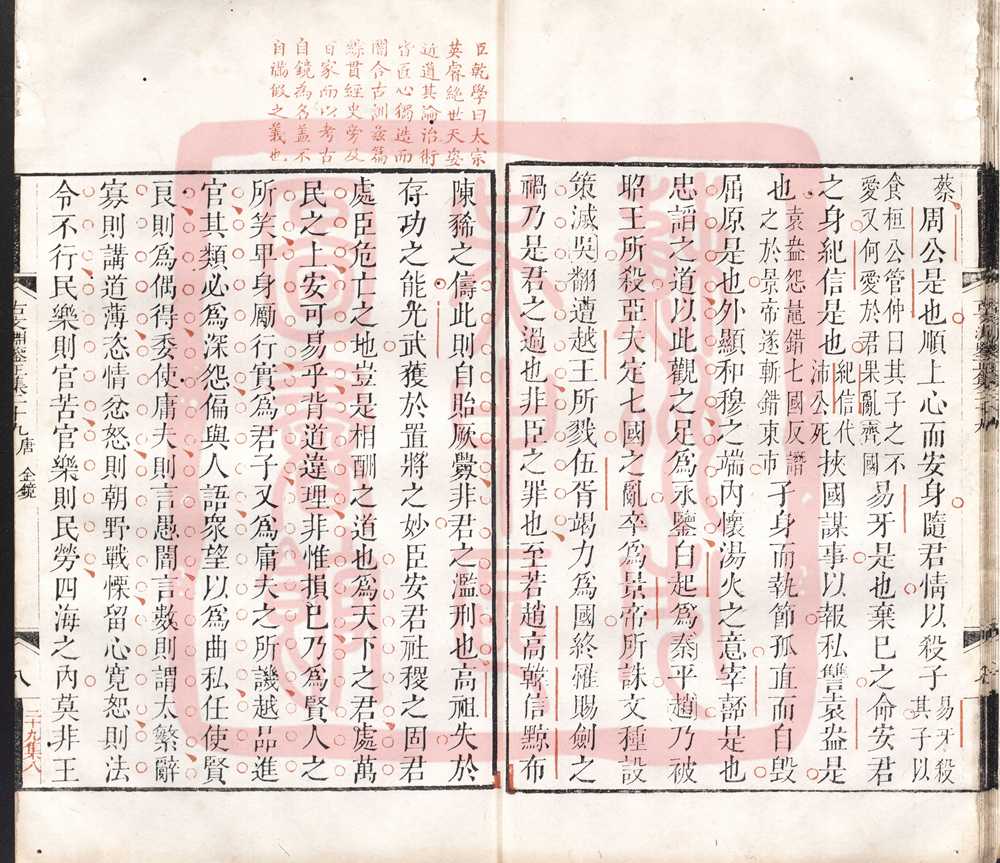 臣乾學曰太宗
英睿絶世天姿
近道其論治術
皆匠心獨造而
闇合古訓玆篇
綜貫經史旁及
百家而以考古
自鏡為名蓋不
自滿假之義也
蔡周公是也順上心而安身隨君情以殺子易牙殺其子以
食桓公管仲曰其子之不愛又何愛於君果亂齊國易牙是也棄己之命安君
之身紀信是也紀信代沛公死挾國謀事以報私讐袁盎是
也袁盎怨鼂錯七國反譖之於景帝遂斬錯東市孑身而執節孤直而自毀
屈原是也外顯和穆之端內懷湯火之意宰嚭是也
忠諂之道以此觀之足為永鑒白起為秦平趙乃被
昭王所殺亞夫定七國之亂卒為景帝所誅文種設
策滅吳翻遭越王所戮伍胥竭力為國終罹賜劍之
禍乃是君之過也非臣之罪也至若趙高韓信黥布
陳豨之儔此則自貽厥釁非君之濫刑也高祖失於
存功之能光武獲於置將之妙臣安君社稷之固君
處臣危亡之地豈是相酬之道也為天下之君處萬
民之上安可易乎背道違理非惟損己乃為賢人之
所笑單身勵行實為君子又為庸夫之所譏越品進
官其類必為深怨偏與人語衆望以為曲私任使賢
良則為偶得委使庸夫則言愚闇言數則謂太繁辭
寡則講道薄恣情忿怒則朝野戰慄留心寬恕則法
令不行民樂則官苦官樂則民勞四海之內莫非王
古文淵鑒正集二十九 唐 金鏡
八
二十九集八